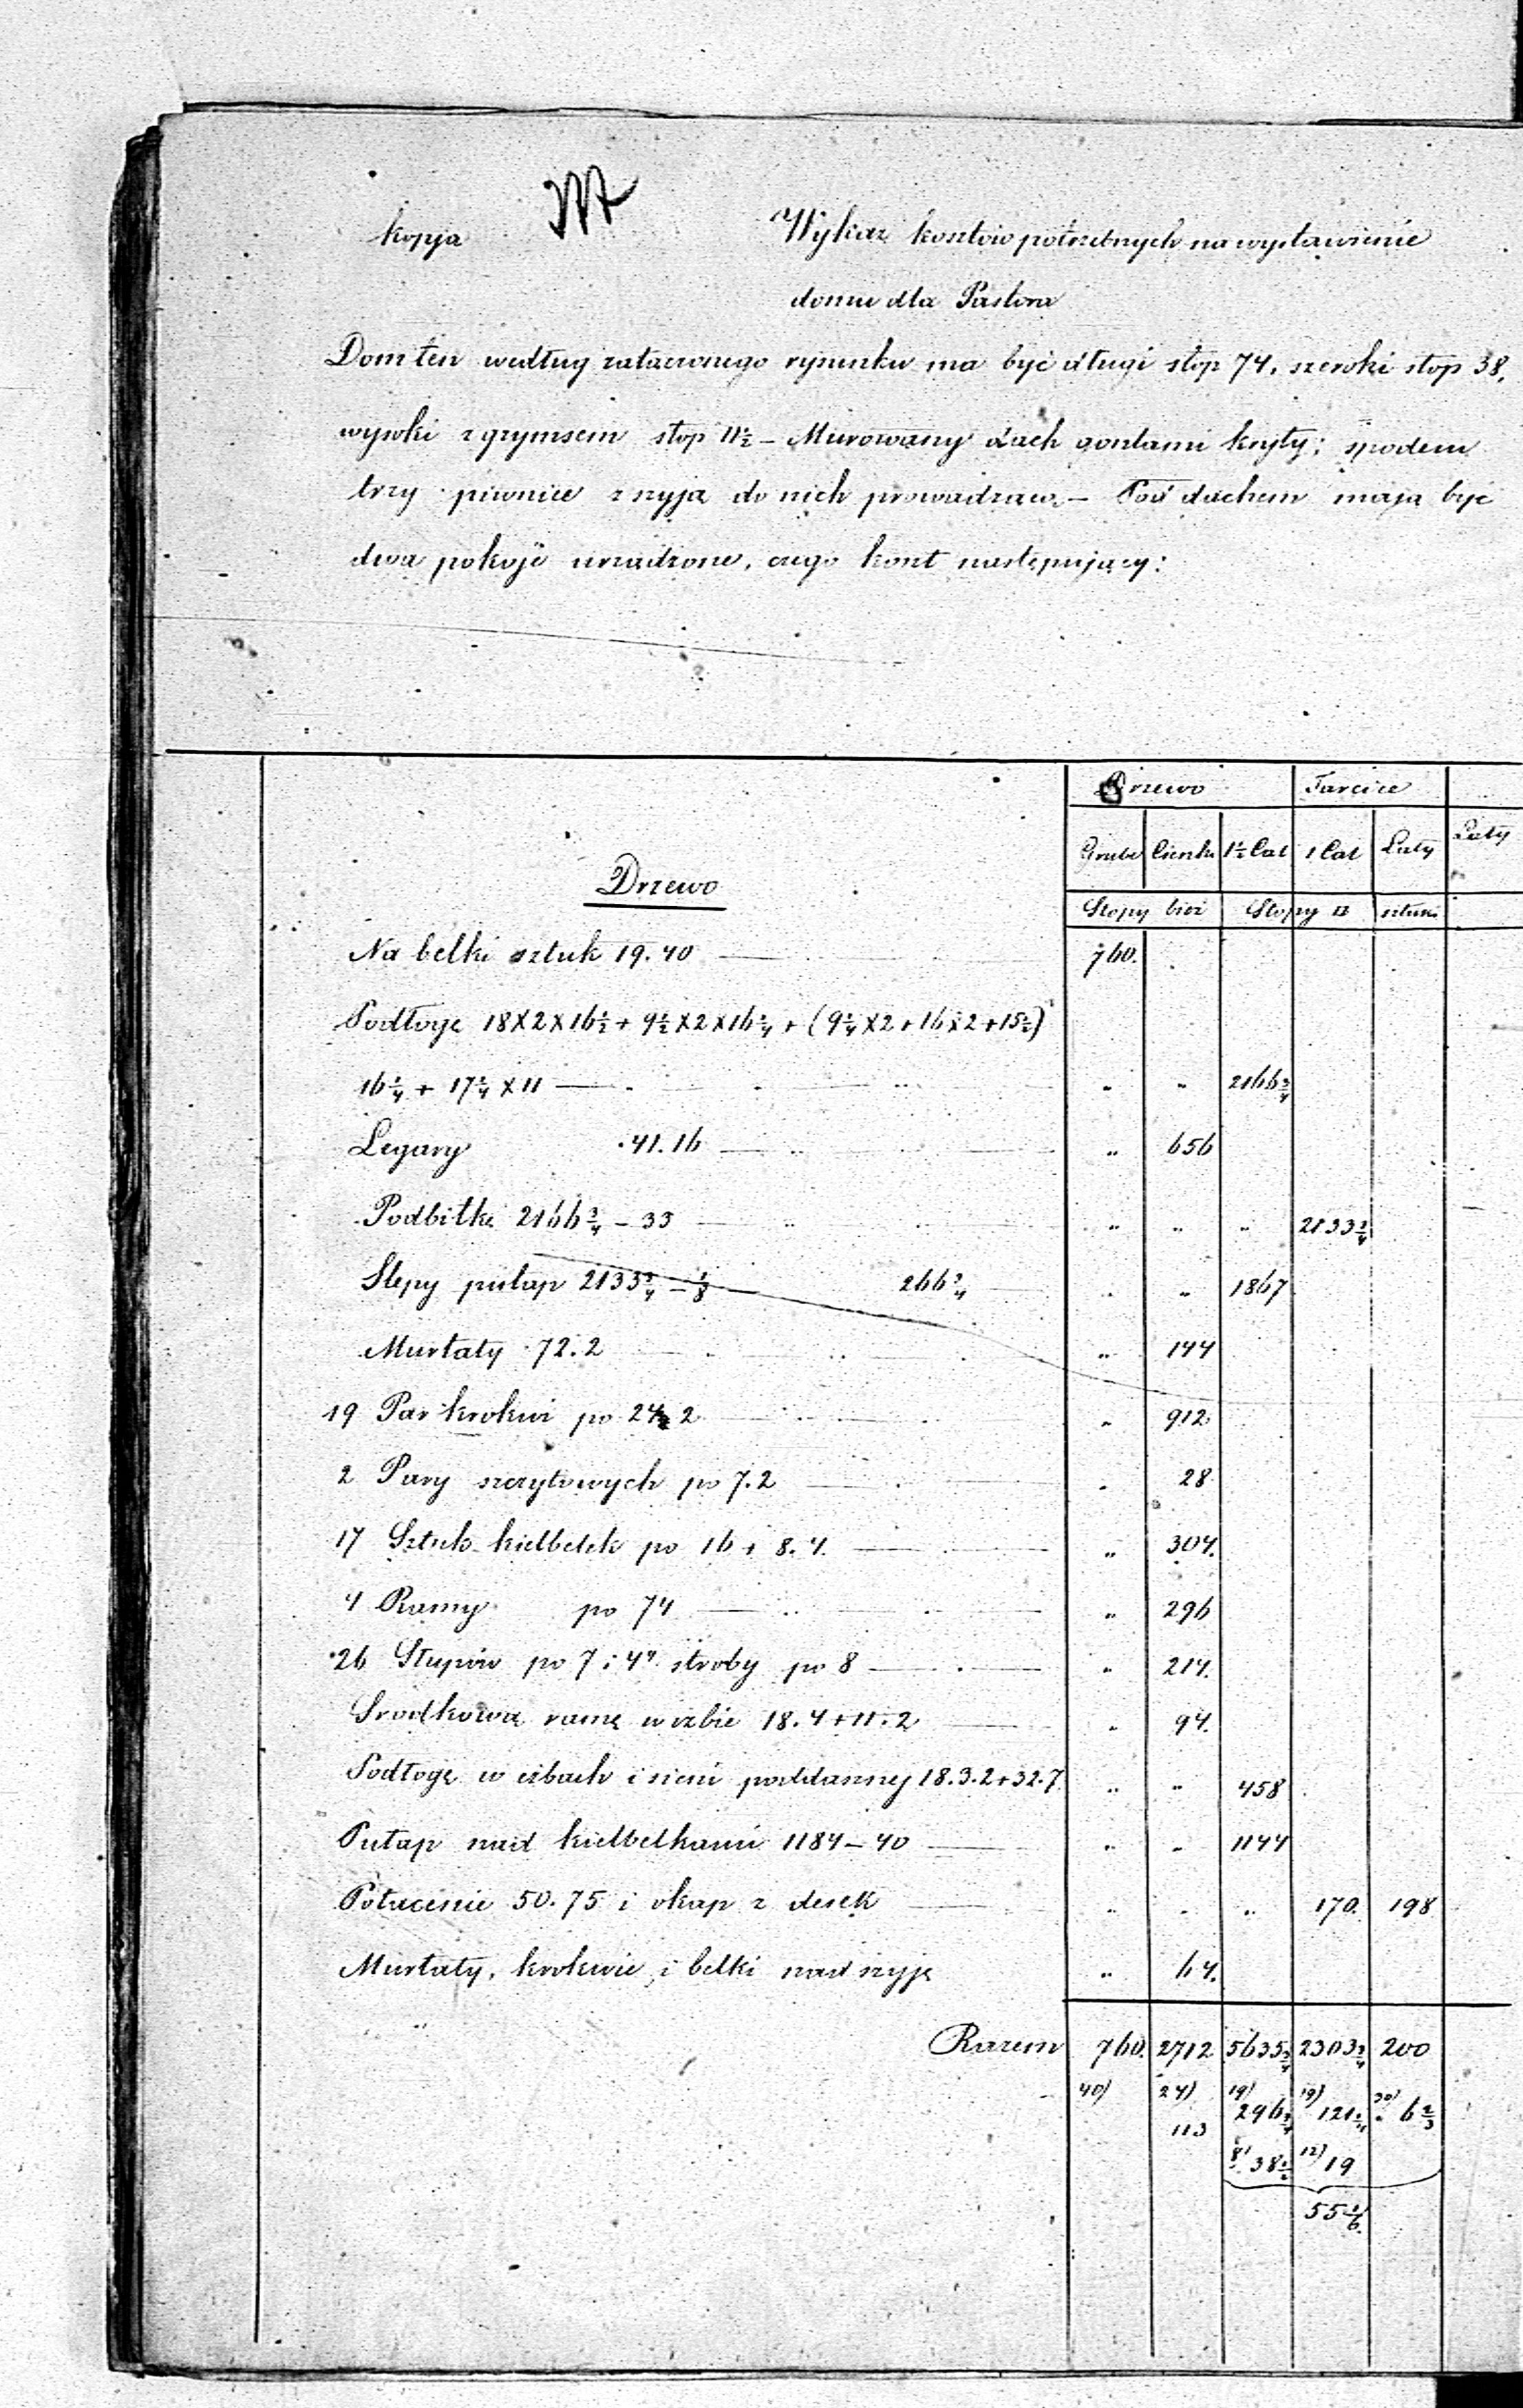 kopja
Wykaz kosztów potrzebnych na wystawienie
domu dla Pastora
Dom ten według załączonego rysunku ma być długi stop 74, szeroki stop 38,
wysoki z grymsem stop 11½ – Murowany dach gontami kryty; spodem
trzy piwnice z szyją do nich prowadzącą – Pod dachem mają być
dwa pokoje urządzone, czego koszt następujący:
Drzewo Tarcice
Grube Cienkie 1½ Cal 1 Cal Łaty Łaty
Stopy bież Stopy □ sztuki
Drzewo
Na belki sztuk 19.40 — 760.
Podłogę 18X2X16½ + 9½X2X16¼ + (9¼X2+16X2+15½)
16¼ + 17¼ X 11 — " " 2166¾
Legary 41.16 — " 656
Podbitkę 2166¾ – 33 — " " " 2133¾
Slepy pułap 2133¾ – ⅛ — 266¾ — " " 1867
Murłaty 72.2 — " 144
19 Par krokwi po 24 2 — " 912
2 Pary szczytowych po 7.2 — " 28
17 Sztuk kielbelek po 16 + 8.4. — " 304.
4 Ramy po 74 — " 296
26 Słupów po 7 i 4" stroby po 8 — " 214.
Srodkową ramę w izbie 18.4+11.2 — " 94.
Podłogę w izbach i sieni poddasznej 18.3.2+32.7 " " 458
Pułap nad kielbelkami 1184–40 — " " 1144
Połacenie 50.75 i okap z desek — " " " 170. 198
Murłaty, krokwie i belki nad szyję " 64.
Razem 760. 2712 5635¾ 2303¾ 200
40) 24) 19) 19) 30)
113 296¾ 121¼ " 6⅔
8) 38½ 12) 19
55⅙.